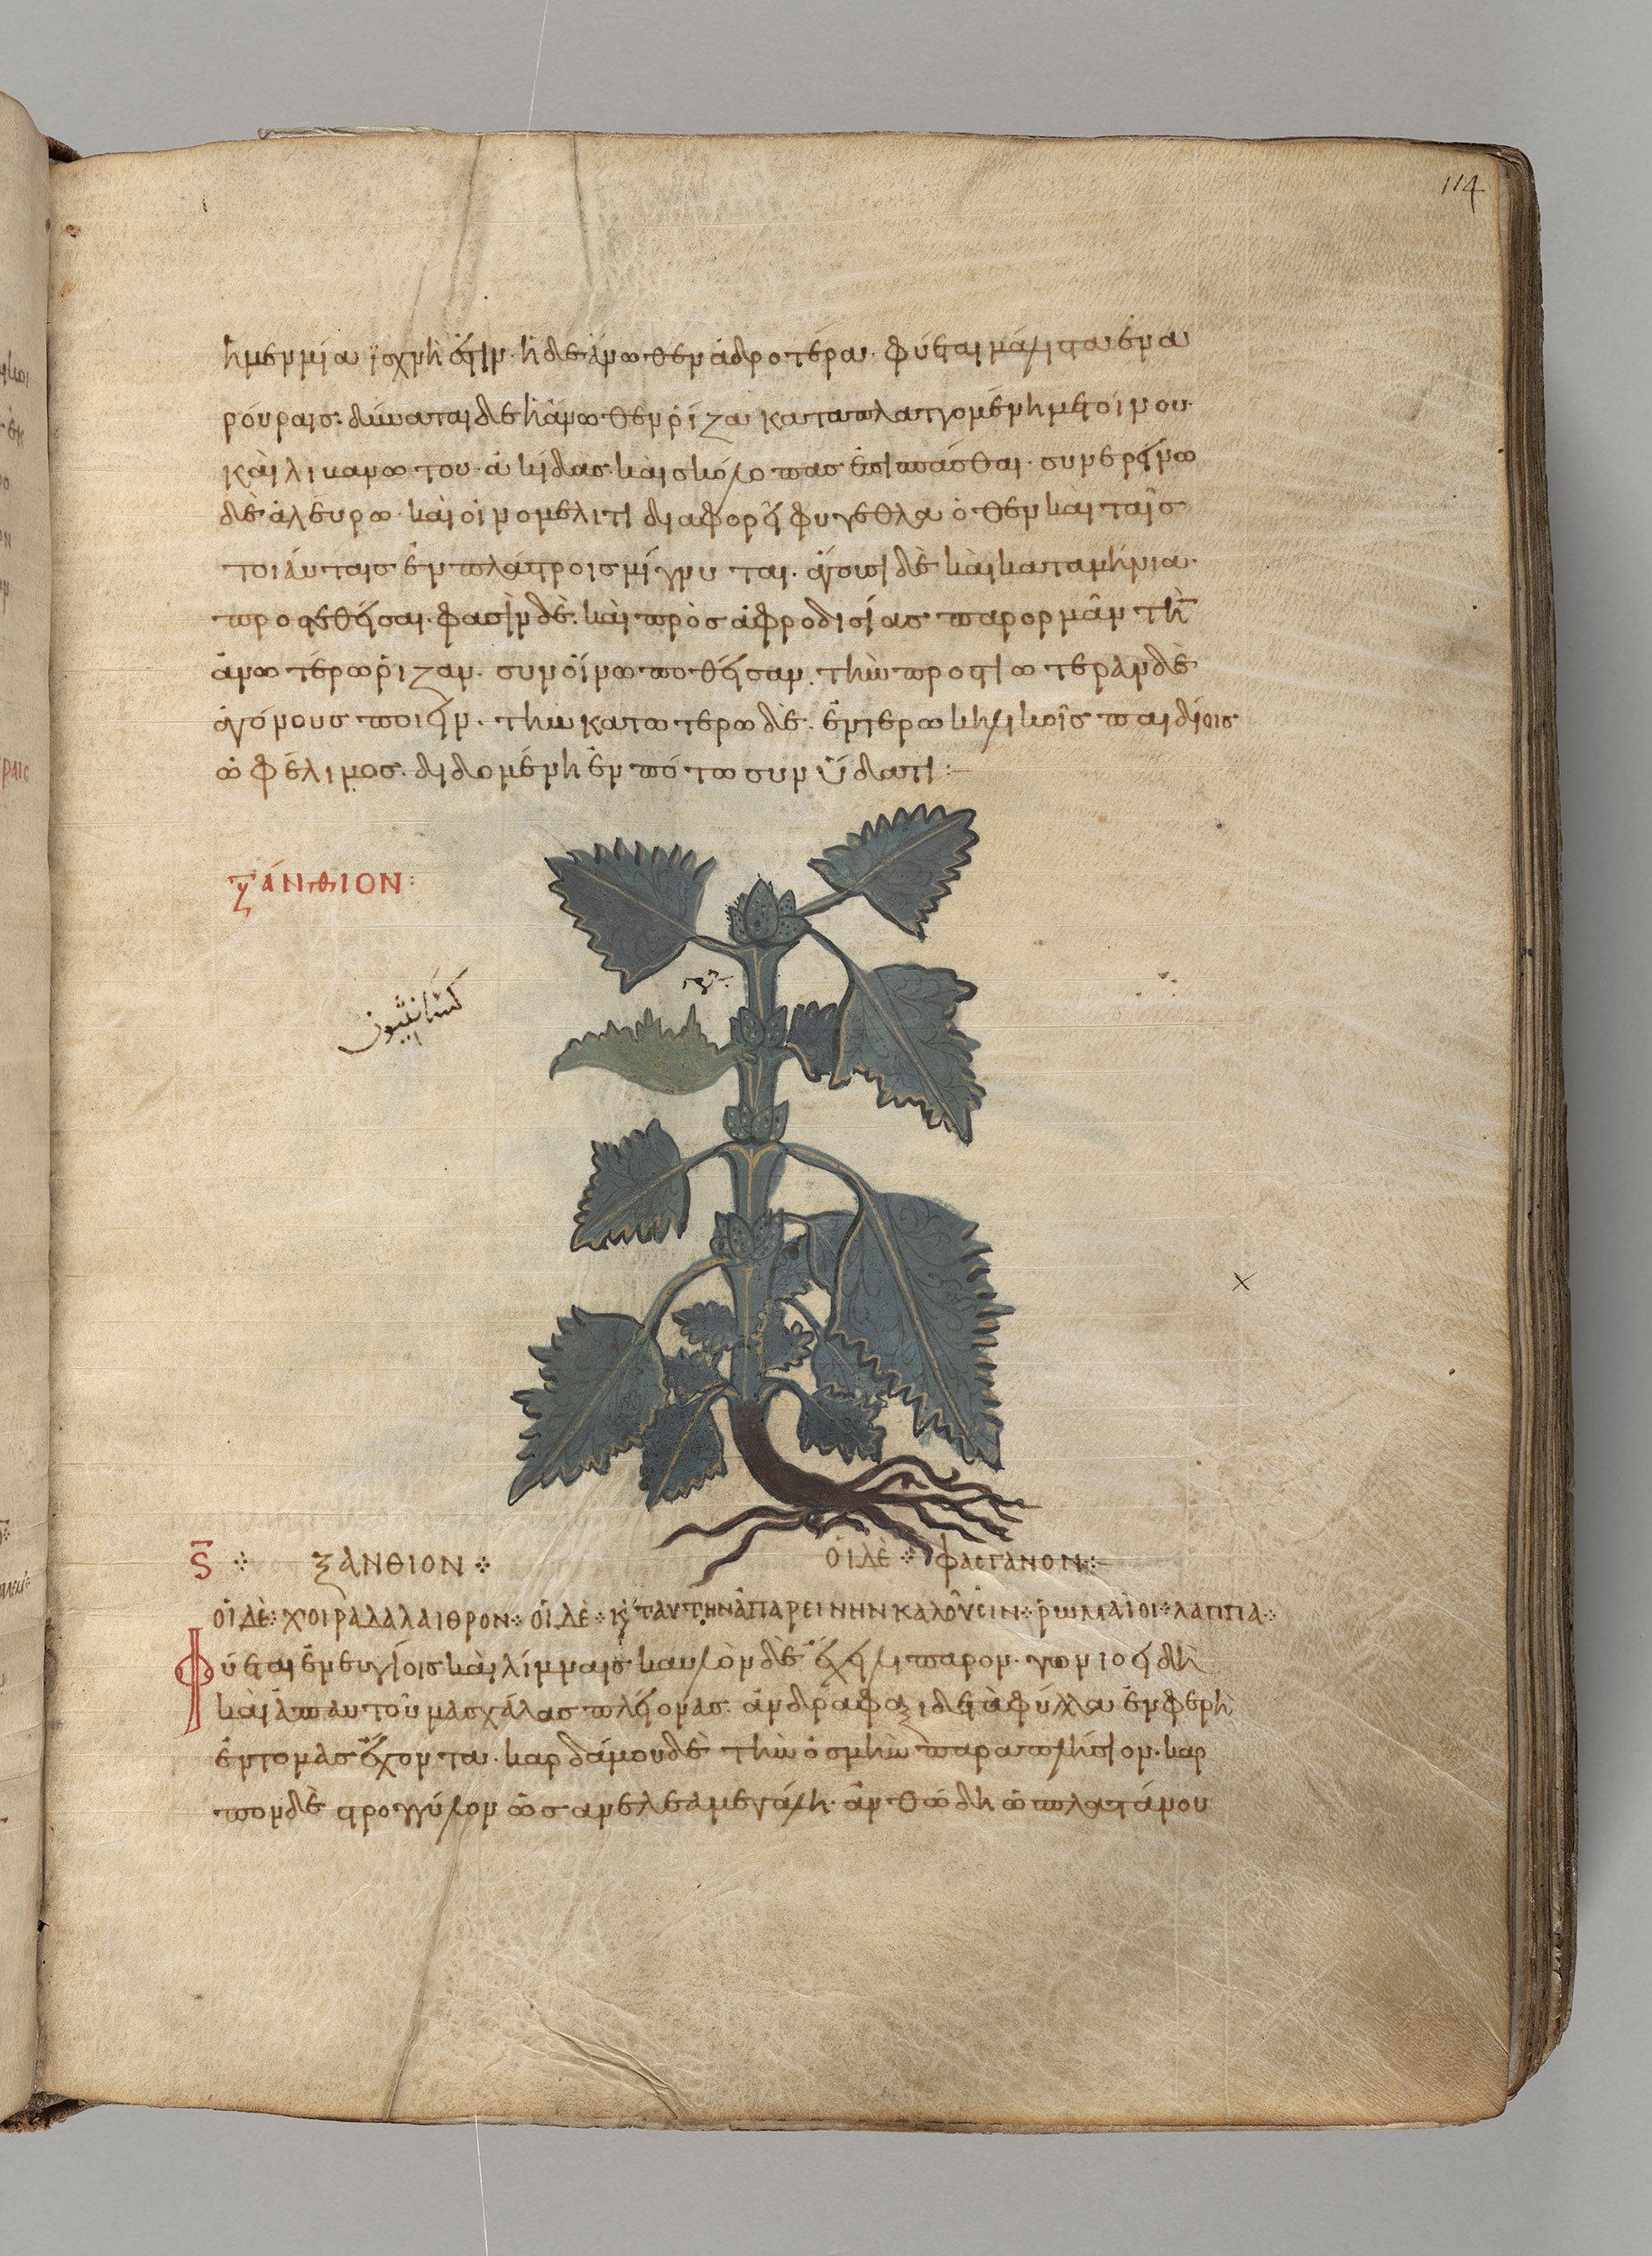 114
ἡ μὲν μία ἰσχνὴ ἐστὶν· ἡ δὲ ἄνωθεν ἁδροτέρα· φύεται μάλιστα ἐν ἀ
ρούραις· δύναται δὲ ἡ ἄνωθεν ῥίζα καταπλασσομένη μετ οἴνου·
καὶ λιβανωτοῦ· ἀκίδας· καὶ σκόλοπας ἐπισπάσθαι· σὺν ἐρίνω
δὲ ἀλεύρω· καὶ οἰνομέλιτι διαφορεῖ φύγεθλα ὅθεν καὶ ταῖς
τοιαύταις ἐμπλάστροις μίγνυται· ἄγουσι δὲ καὶ καταμήνια·
προστεθεῖσαι· φασὶν δὲ· καὶ πρὸς ἀφροδισίας παρορμᾶν τὴν
ἀνωτέρω ῥίζαν· σὺν οἴνω ποθεῖσαν· τὴν προσ ωτέραν δὲ
ἀγόνους ποιεῖν· τὴν κατωτέρω δὲ· ἐντεροκηλικοῖς παιδίοις
ὠφέλιμος· διδομένη ἐν πότω σὺν ὕδατι :–
ΞΆΝΘΙΟΝ:
كسانثيون
ς ⁘ ΞΑΝΘΙΟΝ ⁘ ΟἹ ΔῈ ⁘ ΦΑΣΓΑΝΟΝ :–
ΟἹ ΔῈ : ΧΟΙΡΑΔΑΛΑΙΘΡΟΝ ⁘ ΟἹ ΔῈ ⁘ Κ ΤΑΥΤΗΝ ἈΠΑΡΕΙΝΗΝ ΚΑΛΟΥΣΙΝ ⁘ ῬΩΜΑΙΟΙ ⁘ ΛΑΠΠΑ ⁘
Φύεται ἐν εὐγείοις καὶ λίμναις καυλὸν δὲ ἔχει λιπαρὸν· γωνιοειδῆ
καὶ ἀπ αὐτοῦ μασχάλας πλείονας· ἀνδραφάξι δὲ τὰ φύλλα ἐμφερῆ
ἐντομὰς ἔχοντα· καρδάμου δὲ τὴν ὀσμὴν παραπλήσιον· καρ
πὸν δὲ στρογγύλον ὡς ἀν ἐλέα μεγάλη· ἀνθώδη ὡ πλατάνου